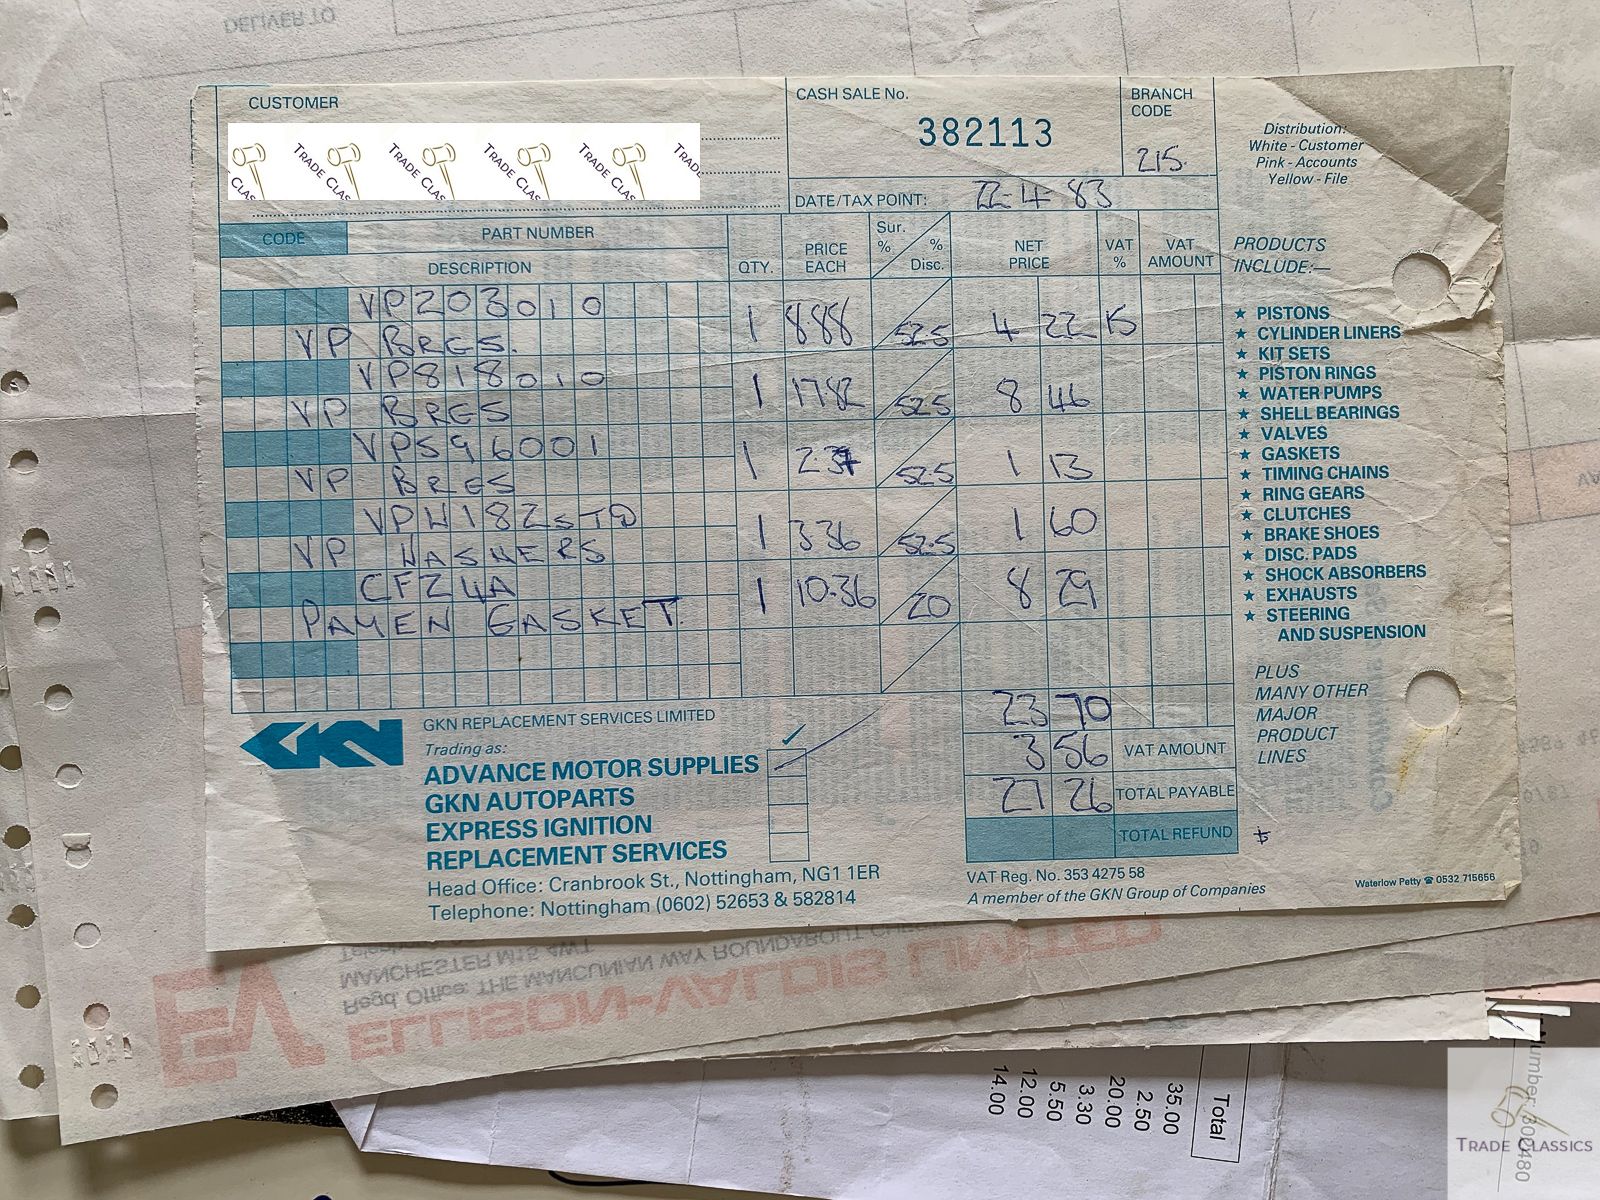 DELIVER TO
CUSTOMER
TRADE CLAS TRADE CLAS TRADE CLAS TRADE CLAS TRAD
CASH SALE No.
382113
BRANCH
CODE
215.
DATE/TAX POINT: 22-4-83
Distribution:
White - Customer
Pink - Accounts
Yellow - File
CODE PART NUMBER
DESCRIPTION QTY. PRICE EACH Sur. % % Disc. NET PRICE VAT % VAT AMOUNT
VP203010
VP BRGS. 1 8.88 52.5 4 22 15
VP818010
VP BRGS 1 17.82 52.5 8 46
VP596001
VP BRGS 1 2.37 52.5 1 13
VPW182STD
VP WASHERS 1 3.36 52.5 1 60
CF24A
PAYEN GASKET. 1 10.36 20 8 29
23 70
3 56 VAT AMOUNT
27 26 TOTAL PAYABLE
TOTAL REFUND
PRODUCTS
INCLUDE:—
★ PISTONS
★ CYLINDER LINERS
★ KIT SETS
★ PISTON RINGS
★ WATER PUMPS
★ SHELL BEARINGS
★ VALVES
★ GASKETS
★ TIMING CHAINS
★ RING GEARS
★ CLUTCHES
★ BRAKE SHOES
★ DISC. PADS
★ SHOCK ABSORBERS
★ EXHAUSTS
★ STEERING
AND SUSPENSION
PLUS
MANY OTHER
MAJOR
PRODUCT
LINES
GKN
GKN REPLACEMENT SERVICES LIMITED
Trading as:
ADVANCE MOTOR SUPPLIES ✓
GKN AUTOPARTS
EXPRESS IGNITION
REPLACEMENT SERVICES
Head Office: Cranbrook St., Nottingham, NG1 1ER
Telephone: Nottingham (0602) 52653 & 582814
VAT Reg. No. 353 4275 58
A member of the GKN Group of Companies
Waterlow Petty ☎ 0532 715656
MANCHESTER M15 4WT
Regd. Office: THE MANCUNIAN WAY ROUNDABOUT
EV
ELLISON-VALDIS LIMITED
Total
35.00
2.50
20.00
3.30
5.50
12.00
14.00
TRADE CLASSICS